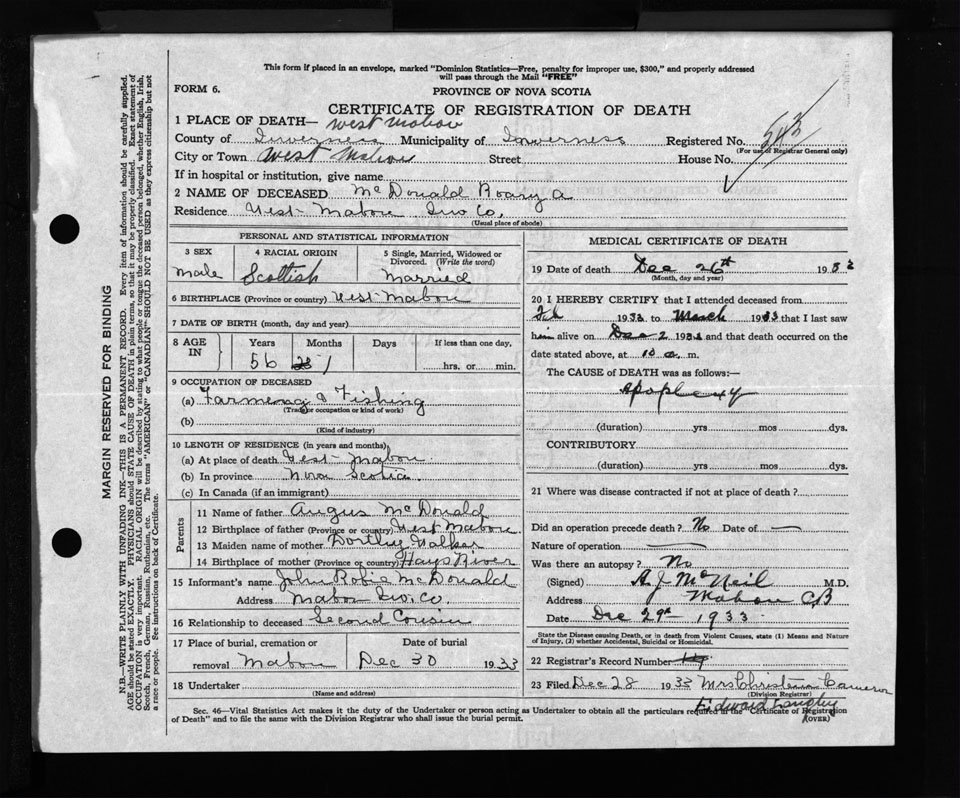 This form if placed in an envelope, marked "Dominion Statistics—Free, penalty for improper use, $300," and properly addressed
will pass through the Mail "FREE"
FORM 6.
PROVINCE OF NOVA SCOTIA
CERTIFICATE OF REGISTRATION OF DEATH
1 PLACE OF DEATH— West Mabou
County of Inverness Municipality of Inverness Registered No. 543
(For use of Registrar General only)
City or Town West Mabou Street House No.
If in hospital or institution, give name
2 NAME OF DECEASED McDonald Roary A
Residence West Mabou Inv Co.
(Usual place of abode)
PERSONAL AND STATISTICAL INFORMATION
3 SEX
Male
4 RACIAL ORIGIN
Scottish
5 Single, Married, Widowed or
Divorced. (Write the word)
Married
6 BIRTHPLACE (Province or country) West Mabou
7 DATE OF BIRTH (month, day and year)
8 AGE IN
Years Months Days If less than one day,
56 1 hrs. or min.
9 OCCUPATION OF DECEASED
(a) Farmering & Fishing
(Trade or occupation or kind of work)
(b)
(Kind of industry)
10 LENGTH OF RESIDENCE (in years and months)
(a) At place of death West Mabou
(b) In province Nova Scotia
(c) In Canada (if an immigrant)
Parents
11 Name of father Angus McDonald
12 Birthplace of father (Province or country) West Mabou
13 Maiden name of mother Dorthy Walker
14 Birthplace of mother (Province or country) Hays River
15 Informant's name John Robie McDonald
Address Mabou Inv Co.
16 Relationship to deceased Second Cousin
17 Place of burial, cremation or
removal Mabou
Date of burial
Dec 30 1933
18 Undertaker
(Name and address)
MEDICAL CERTIFICATE OF DEATH
19 Date of death Dec 26th 1933
(Month, day and year)
20 I HEREBY CERTIFY that I attended deceased from
Feb 1933 to March 1933 that I last saw
him alive on Dec 2 193 and that death occurred on the
date stated above, at 10 a. m.
The CAUSE of DEATH was as follows:—
Apoplexy
(duration) yrs mos dys.
CONTRIBUTORY
(duration) yrs mos dys.
21 Where was disease contracted if not at place of death?
Did an operation precede death? No Date of —
Nature of operation —
Was there an autopsy? No
(Signed) A J McNeil M.D.
Address Mabou CB
Date Dec 29th 1933
State the Disease causing Death, or in death from Violent Causes, state (1) Means and Nature
of Injury, (2) whether Accidental, Suicidal or Homicidal.
22 Registrar's Record Number
23 Filed Dec 28 1933 Mrs Christena Cameron
(Division Registrar)
Edward Langley
Sec. 46—Vital Statistics Act makes it the duty of the Undertaker or person acting as Undertaker to obtain all the particulars required in the "Certificate of Registration
of Death" and to file the same with the Division Registrar who shall issue the burial permit.
(OVER)
MARGIN RESERVED FOR BINDING
N.B.—WRITE PLAINLY WITH UNFADING INK—THIS IS A PERMANENT RECORD. Every item of information should be carefully supplied.
AGE should be stated EXACTLY. PHYSICIANS should STATE CAUSE OF DEATH in plain terms, so that it may be properly classified. Exact statement of
OCCUPATION is very important. RACIAL ORIGIN will be described by stating to what people or tongue the deceased person belonged, whether English, Irish,
Scotch, French, German, Russian, Ruthenian, etc. The terms "AMERICAN" or "CANADIAN" SHOULD NOT BE USED as they express citizenship but not
a race or people. See instructions on back of Certificate.